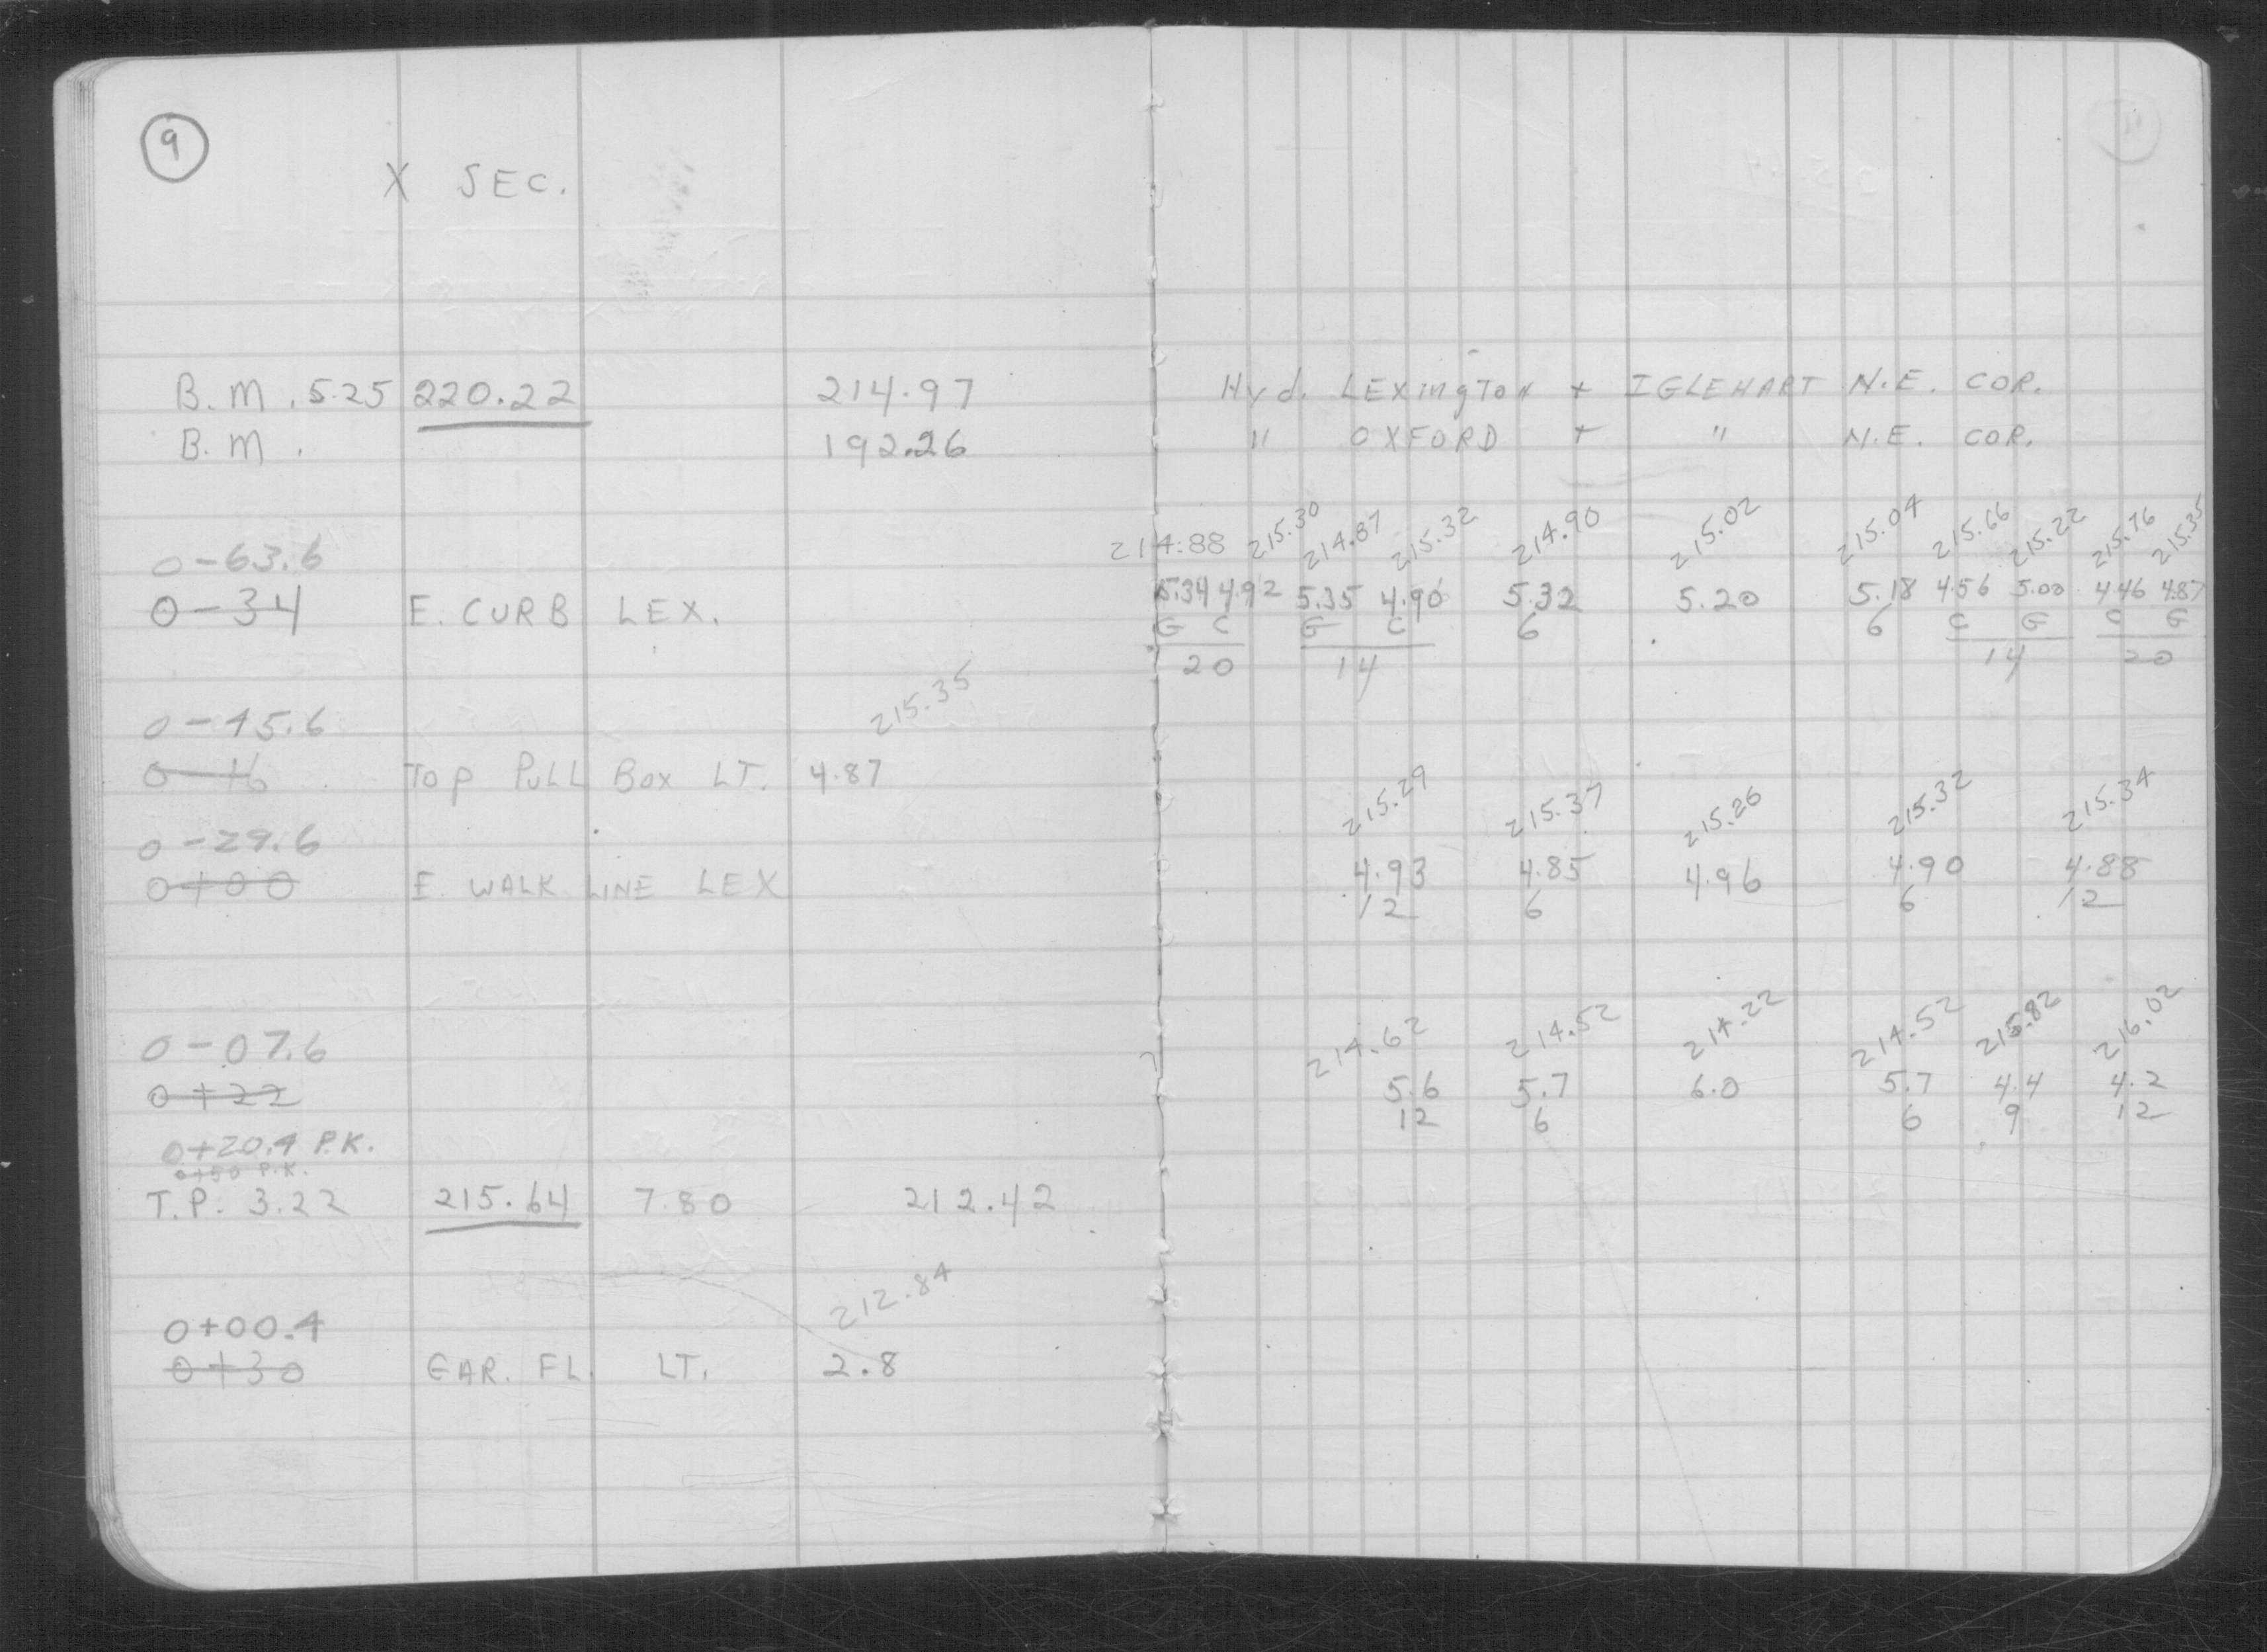 9
X SEC.
B.M. 5.25 220.22 214.97 Hyd. LEXINGTON + IGLEHART N.E. COR.
B.M. 192.26 " OXFORD + " N.E. COR.
214.88 215.30 214.87 215.32 214.90 215.02 215.04 215.66 215.22 215.76 215.35
0-63.6
5.34 4.92 5.35 4.90 5.32 5.20 5.18 4.56 5.00 4.46 4.87
0-34 E. CURB LEX.
G C G C 6 6 C G C G
20 14 14 20
215.35
0-45.6
0-16 TOP PULL BOX LT. 4.87
215.29 215.37 215.26 215.32 215.34
0-29.6
4.93 4.85 4.96 4.90 4.88
0+00 E. WALK LINE LEX
12 6 6 12
214.62 214.52 214.22 214.52 215.82 216.02
0-07.6
5.6 5.7 6.0 5.7 4.4 4.2
0+22
12 6 6 9 12
0+20.4 P.K.
0+50 P.K.
T.P. 3.22 215.64 7.80 212.42
212.84
0+00.4
0+30 GAR. FL. LT. 2.8